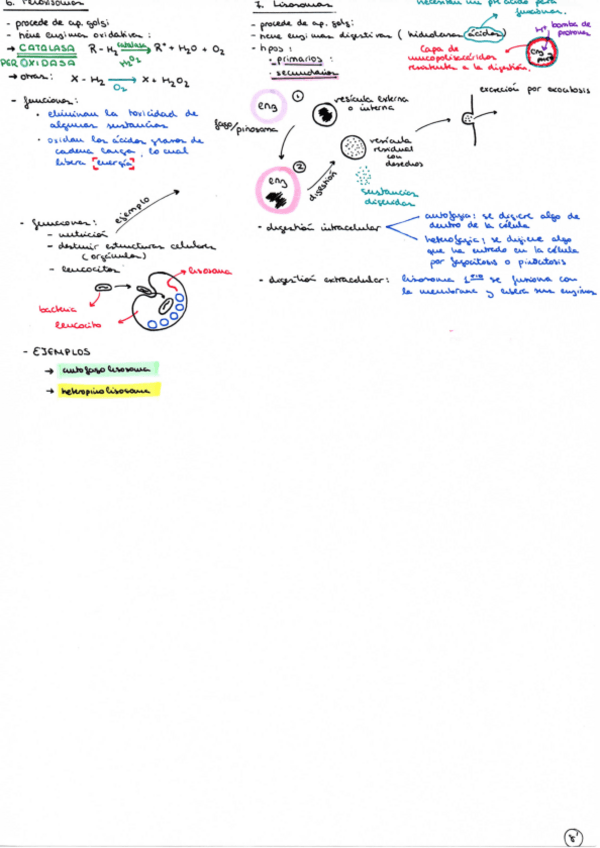 6. Peroxisomas
- procede de ap. golgi
- tiene enzimas oxidativas :
→ CATALASA R - H₂ catalasa H₂O₂ R* + H₂O + O₂
PEROXIDASA
→ otras: X - H₂ O₂ X + H₂O₂
- funciones :
• eliminan la toxicidad de
algunas sustancias
• oxidan los ácidos grasos de
cadena larga, lo cual
libera [energía]
ejemplo
- funciones :
- nutrición
- destruir estructuras celulares
(orgánulos)
- leucocitos
lisosoma
bacteria
leucocito
- EJEMPLOS
→ autofagolisosoma
→ heteropinolisosoma
7. Lisosomas
necesitan un ph ácido para
funcionar.
- procede de ap. golgi
- tiene enzimas digestivas ( hidrolasas ácidas)
- tipos :
- primarios :
- secundarios
H⁺ bomba de
protones
Capa de
mucopolisacáridos
resistente a la digestión.
enz
1
vesícula externa
o interna
fago/pinosoma
excreción por exocitosis
2
enz
digestión
vesícula
residual
con
desechos
sustancias
digeridas
- digestión intracelular
autofagia : se digiere algo de
dentro de la célula
heterofagia : se digiere algo
que ha entrado en la célula
por fagocitosis o pinocitosis
- digestión extracelular : lisosoma 1ario se fusiona con
la membrana y libera sus enzimas
8'